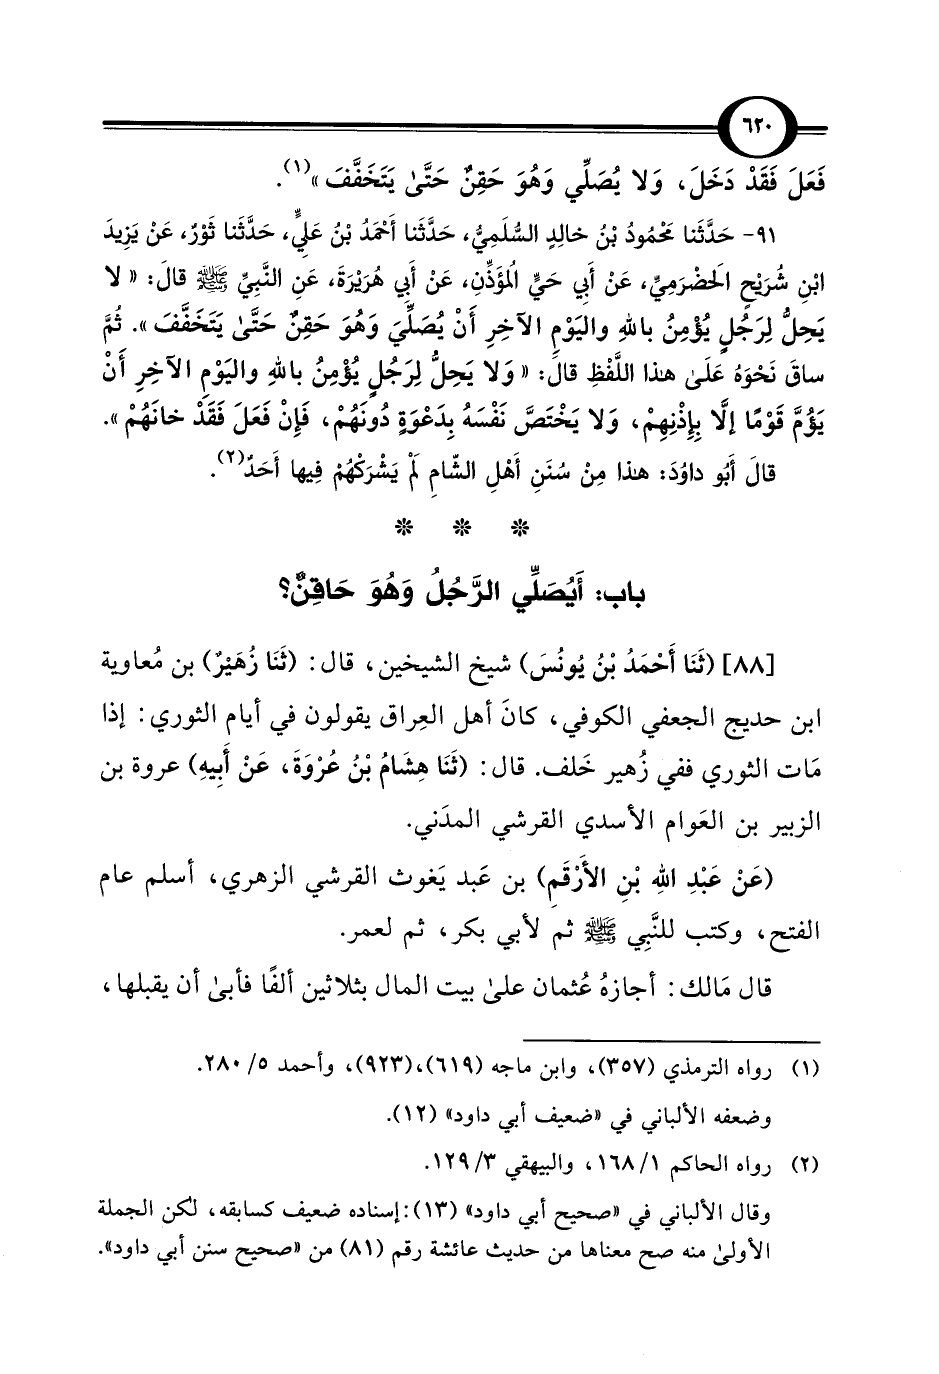 ٦٢٠
فَعَلَ فَقَدْ دَخَلَ، وَلا يُصَلِّي وَهُوَ حَقِنٌ حَتَّىٰ يَتَخَفَّفَ »(١).
٩١- حَدَّثَنا مَحْمُودُ بْنُ خالِدٍ السُّلَمِيُّ، حَدَّثَنا أَحْمَدُ بْنُ عَلِيٍّ، حَدَّثَنا ثَوْرٌ، عَنْ يَزِيدَ
ابْنِ شُرَيْحٍ الحَضْرَمِيِّ، عَنْ أَبِي حَيٍّ المُؤَذِّنِ، عَنْ أَبِي هُرَيْرَةَ، عَنِ النَّبِيِّ ﷺ قالَ: « لا
يَحِلُّ لِرَجُلٍ يُؤْمِنُ بِاللهِ والیَوْمِ الآخِرِ أَنْ يُصَلِّيَ وَهُوَ حَقِنٌ حَتَّىٰ يَتَخَفَّفَ ». ثُمَّ
ساقَ نَحْوَهُ عَلَىٰ هذا اللَّفْظِ قالَ: « وَلا يَحِلُّ لِرَجُلٍ يُؤْمِنُ بِاللهِ والیَوْمِ الآخِرِ أَنْ
يَؤُمَّ قَوْمًا إلَّا بِإِذْنِهِمْ، وَلا يَخْتَصَّ نَفْسَهُ بِدَعْوَةٍ دُونَهُمْ، فَإِنْ فَعَلَ فَقَدْ خانَهُمْ ».
قالَ أَبُو داوُدَ: هذا مِنْ سُنَنِ أَهْلِ الشّامِ لَمْ يَشْرَكْهُمْ فِيها أَحَدٌ(٢).
* * *
باب: أَيُصَلِّي الرَّجُلُ وَهُوَ حَاقِنٌ؟
[٨٨] (ثَنَا أَحْمَدُ بْنُ يُونُسَ) شيخ الشيخين، قال: (ثَنَا زُهَيْرٌ) بن مُعاوية
ابن حديج الجعفي الكوفي، كانَ أهل العِراق يقولون في أيام الثوري: إذا
مَات الثوري ففي زُهير خَلف. قال: (ثَنَا هِشَامُ بْنُ عُرْوَةَ، عَنْ أَبِيهِ) عروة بن
الزبير بن العَوام الأسدي القرشي المدَني.
(عَنْ عَبْدِ اللهِ بْنِ الأَرْقَمِ) بن عَبد يَغوث القرشي الزهري، أسلم عام
الفتح، وكتب للنَّبي ﷺ ثم لأبي بكر، ثم لعمر.
قال مَالك: أجازهُ عُثمان علىٰ بيت المال بثلاثين ألفًا فأبىٰ أن يقبلها،
(١) رواه الترمذي (٣٥٧)، وابن ماجه (٦١٩)،(٩٢٣)، وأحمد ٥/ ٢٨٠.
وضعفه الألباني في «ضعيف أبي داود» (١٢).
(٢) رواه الحاكم ١/ ١٦٨، والبيهقي ٣/ ١٢٩.
وقال الألباني في «صحيح أبي داود» (١٣):إسناده ضعيف كسابقه، لكن الجملة
الأولىٰ منه صح معناها من حديث عائشة رقم (٨١) من «صحيح سنن أبي داود».